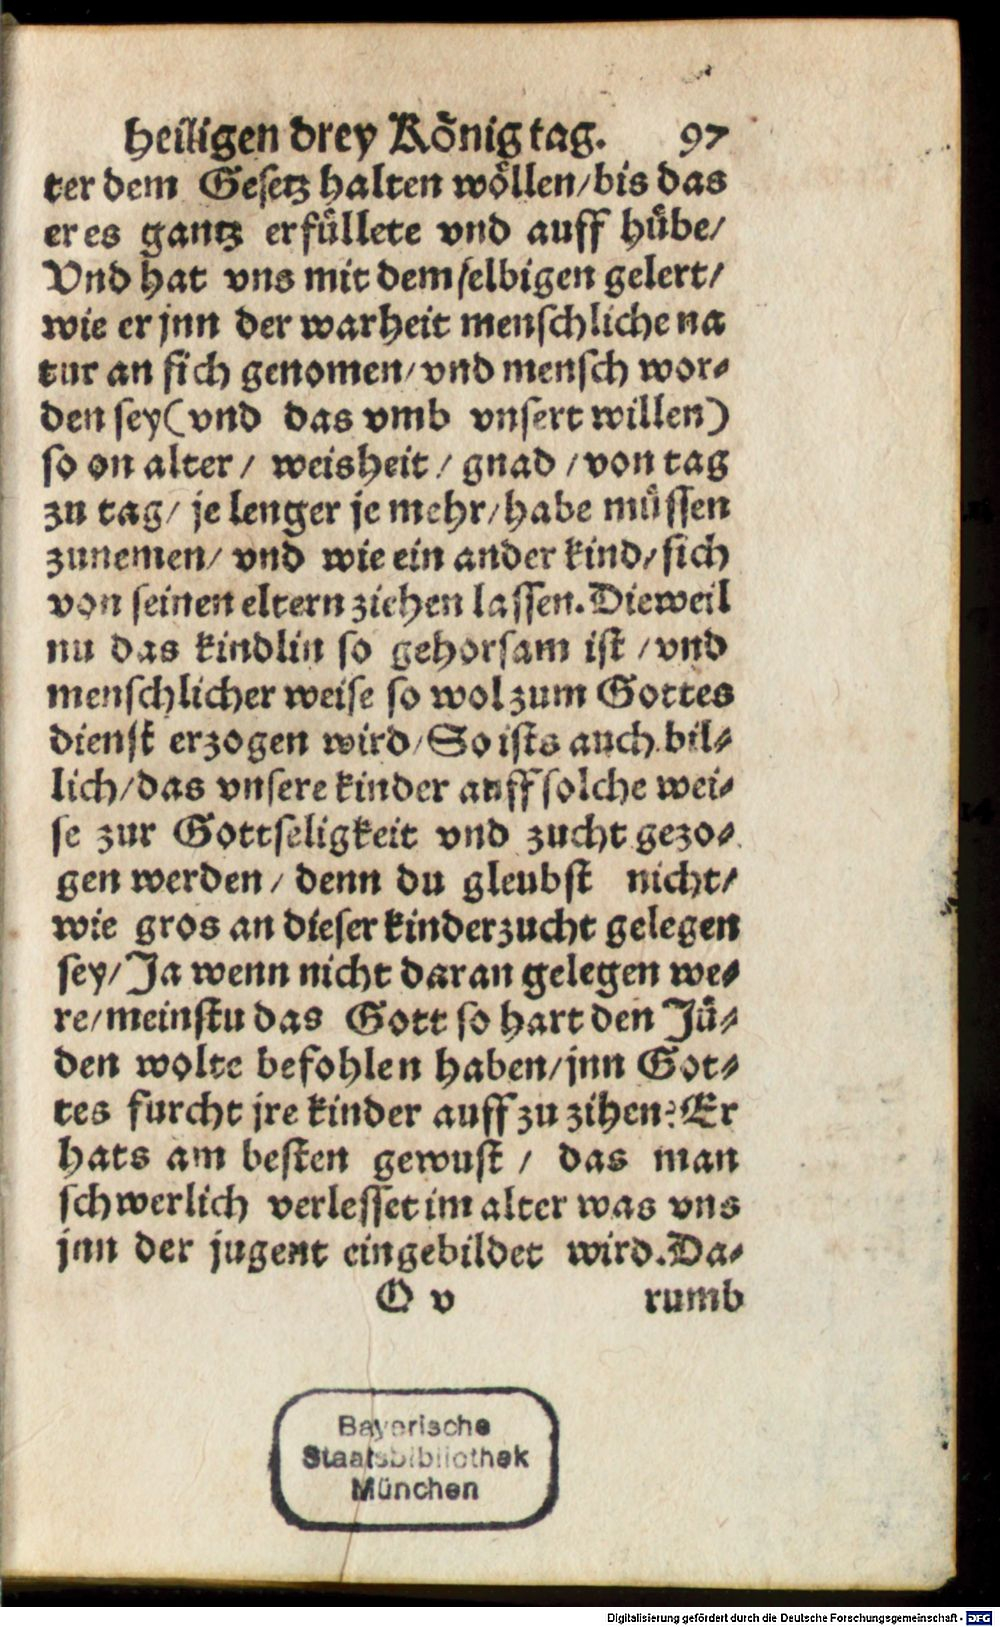 heiligen drey König tag. 97
ter dem Gesetz halten wöllen/bis das
er es gantz erfüllete vnd auff hübe/
Vnd hat vns mit demselbigen gelert/
wie er jnn der warheit menschliche na
tur an sich genomen/vnd mensch wor-
den sey(vnd das vmb vnsert willen)
so on alter/ weisheit/ gnad/von tag
zu tag/ je lenger je mehr/habe müssen
zunemen/ vnd wie ein ander kind/sich
von seinen eltern ziehen lassen. Dieweil
nu das kindlin so gehorsam ist/vnd
menschlicher weise so wol zum Gottes
dienst erzogen wird/So ists auch bil-
lich/das vnsere kinder auff solche wei-
se zur Gottseligkeit vnd zucht gezo-
gen werden/ denn du gleubst nicht/
wie gros an dieser kinderzucht gelegen
sey/Ja wenn nicht daran gelegen we-
re/meinstu das Gott so hart den Jü-
den wolte befohlen haben/jnn Got-
tes furcht jre kinder auff zu zihen? Er
hats am besten gewust/ das man
schwerlich verlesset im alter was vns
jnn der jugent eingebildet wird. Da-
O v rumb
Bayerische
Staatsbibliothek
München
Digitalisierung gefördert durch die Deutsche Forschungsgemeinschaft - DFG